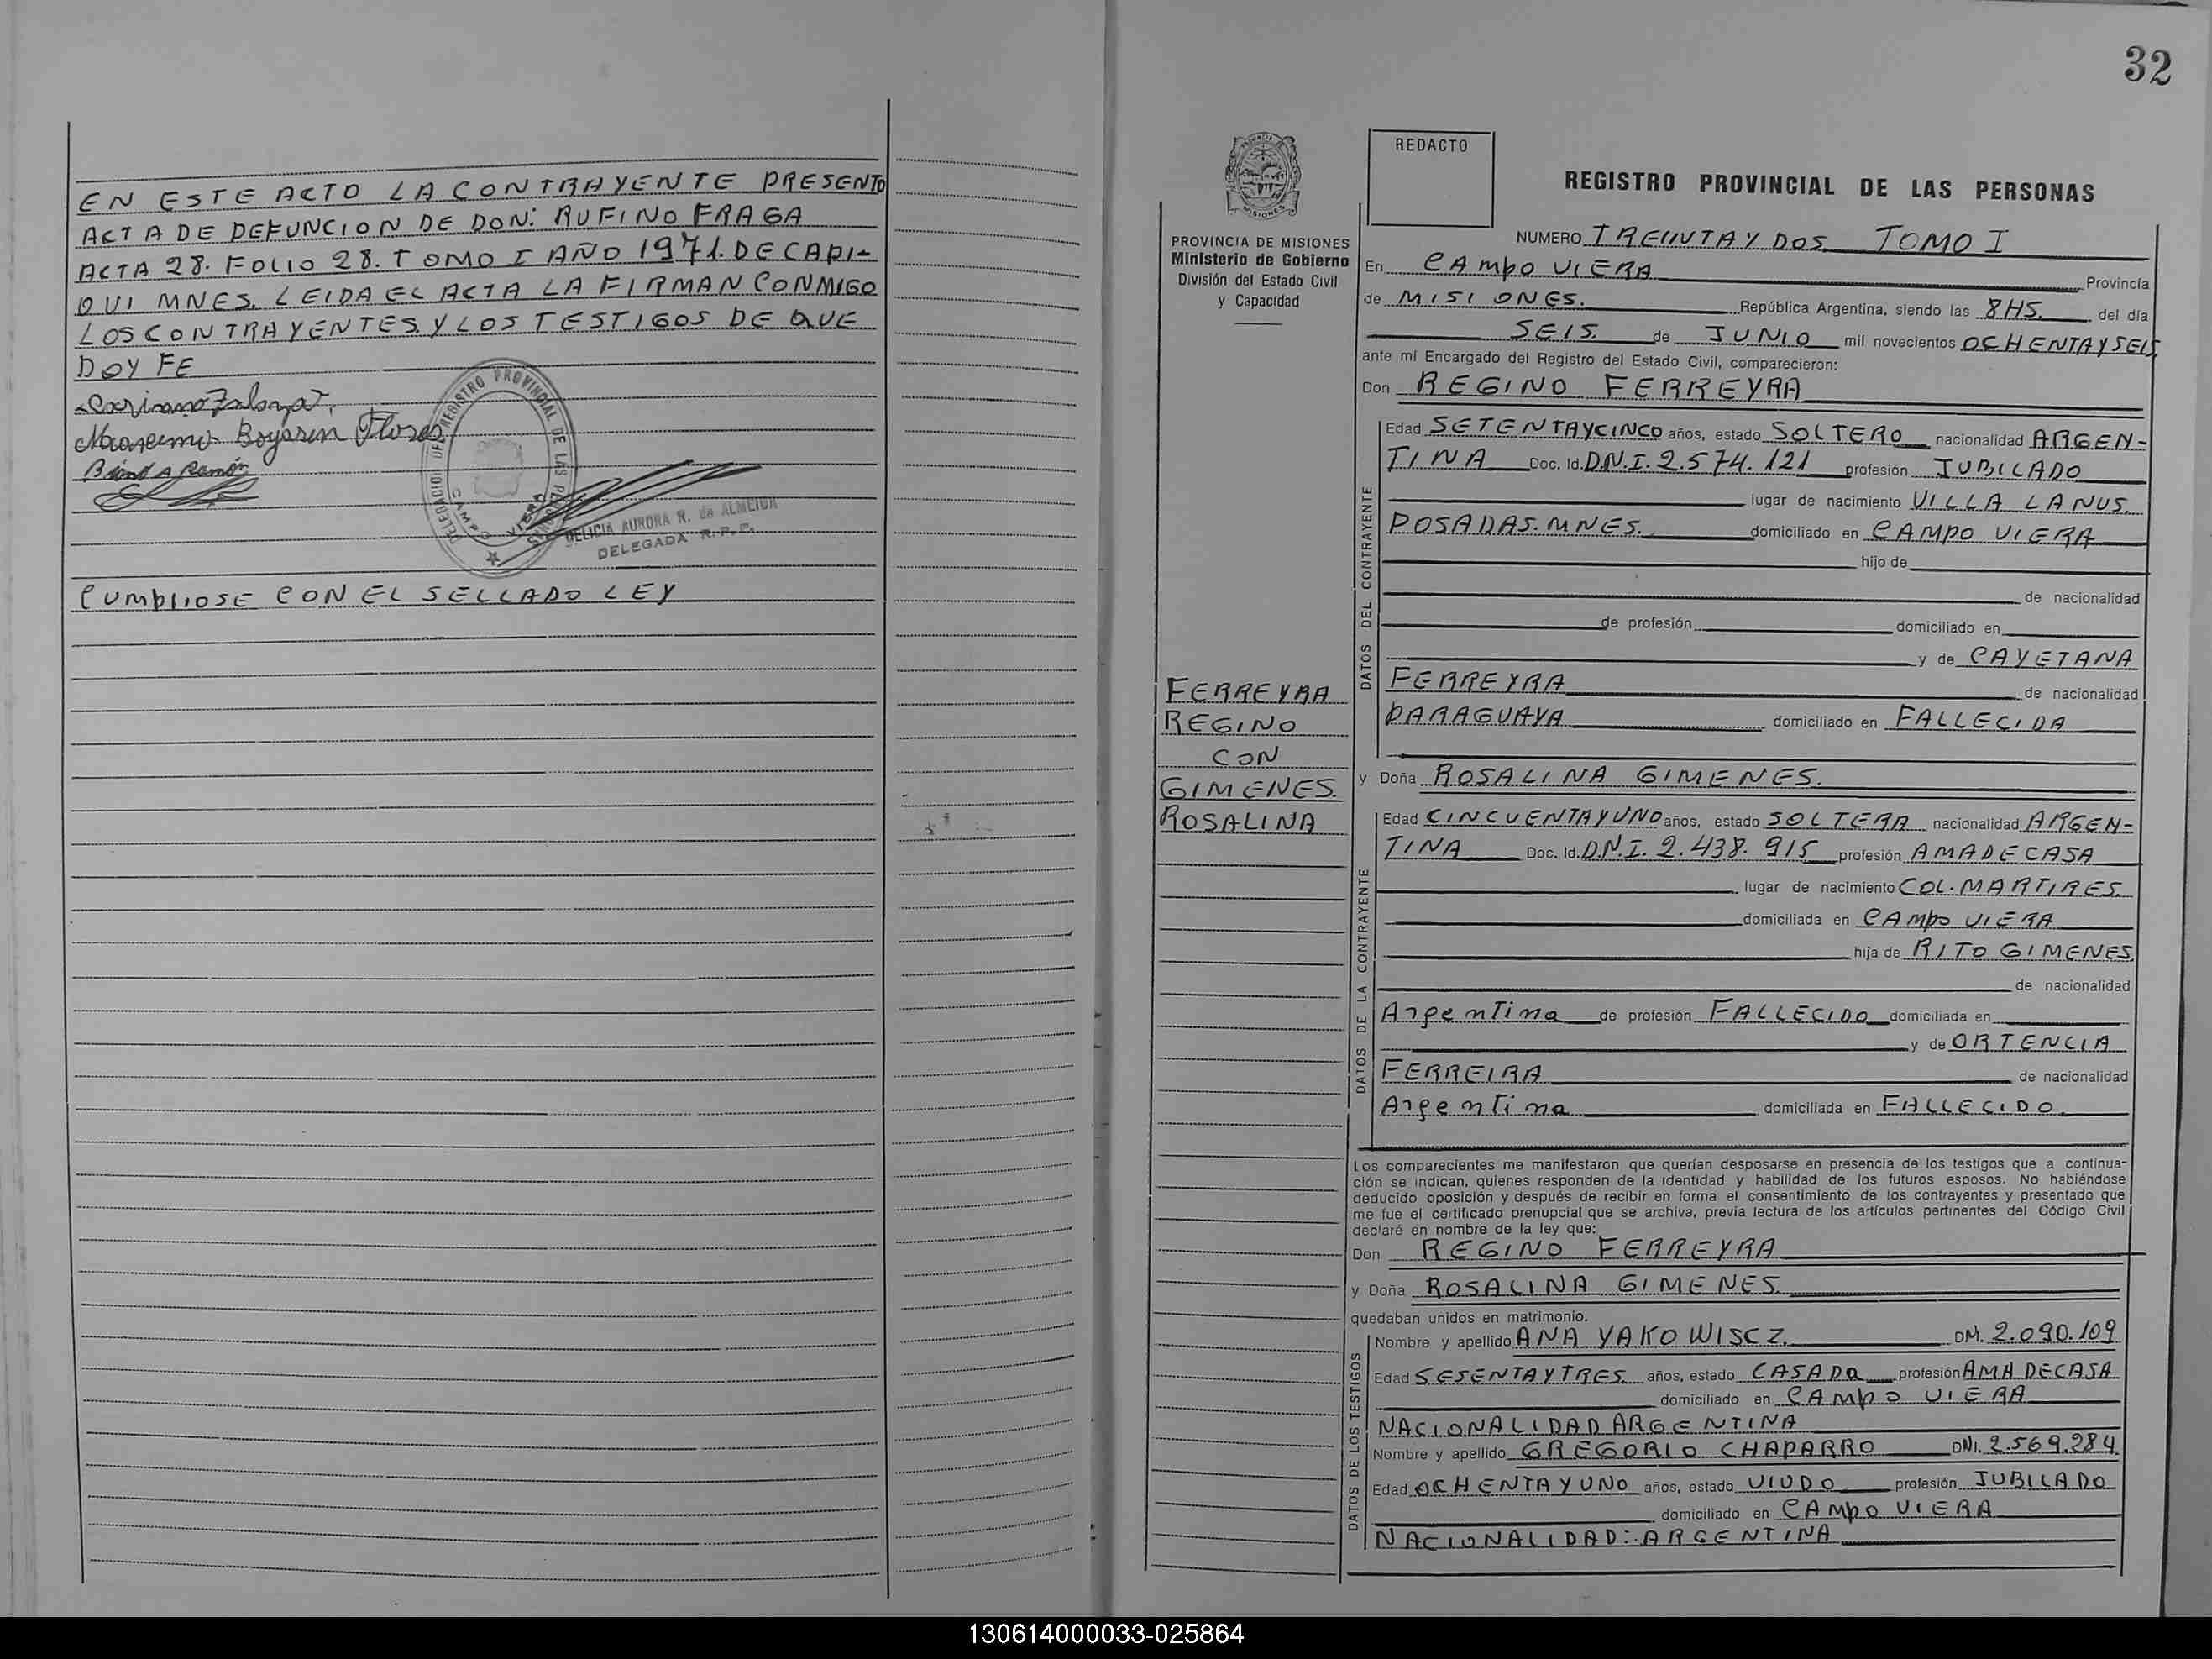 EN ESTE ACTO LA CONTRAYENTE PRESENTO
ACTA DE DEFUNCION DE DON: RUFINO FRAGA
ACTA 28. FOLIO 28. TOMO I AÑO 1971. DE CAPI-
OVI MNES. LEIDA EL ACTA LA FIRMAN CONMIGO
LOS CONTRAYENTES Y LOS TESTIGOS DE QUE
DOY FE
Boyaren Flores
A Ramón
DELEGACION DEL REGISTRO PROVINCIAL DE LAS PERSONAS
CAMPO VIERA
DELICIA AURORA R. de ALMEIDA
DELEGADA R.P.P.
CUMPLIOSE CON EL SELLADO LEY
32
PROVINCIA DE
MISIONES
REDACTO
REGISTRO PROVINCIAL DE LAS PERSONAS
PROVINCIA DE MISIONES
Ministerio de Gobierno
División del Estado Civil
y Capacidad
FERREYRA
REGINO
CON
GIMENES.
ROSALINA
NUMERO TREINTA Y DOS. TOMO I
En CAMPO VIERA Provincia
de MISIONES. República Argentina, siendo las 8HS. del día
SEIS. de JUNIO mil novecientos OCHENTA Y SEIS
ante mí Encargado del Registro del Estado Civil, comparecieron:
Don REGINO FERREYRA
DATOS DEL CONTRAYENTE
Edad SETENTAYCINCO años, estado SOLTERO nacionalidad ARGEN-
TINA Doc. Id. D.N.I. 2.574.121 profesión JUBILADO
lugar de nacimiento VILLA LANUS.
POSADAS. MNES. domiciliado en CAMPO VIERA
hijo de
de nacionalidad
de profesión domiciliado en
y de CAYETANA
FERREYRA de nacionalidad
PARAGUAYA domiciliado en FALLECIDA
y Doña ROSALINA GIMENES.
DATOS DE LA CONTRAYENTE
Edad CINCUENTAYUNO años, estado SOLTERA nacionalidad ARGEN-
TINA Doc. Id. D.N.I. 2.438.915 profesión AMA DE CASA
lugar de nacimiento COL. MARTIRES.
domiciliada en CAMPO VIERA
hija de RITO GIMENES.
de nacionalidad
Argentina de profesión FALLECIDO domiciliada en
y de ORTENCIA
FERREIRA de nacionalidad
Argentina domiciliada en FALLECIDO.
Los comparecientes me manifestaron que querían desposarse en presencia de los testigos que a continua-
ción se indican, quienes responden de la identidad y habilidad de los futuros esposos. No habiéndose
deducido oposición y después de recibir en forma el consentimiento de los contrayentes y presentado que
me fue el certificado prenupcial que se archiva, previa lectura de los artículos pertinentes del Código Civil
declaré en nombre de la ley que:
Don REGINO FERREYRA
y Doña ROSALINA GIMENES.
quedaban unidos en matrimonio.
DATOS DE LOS TESTIGOS
Nombre y apellido ANA YAKOWISCZ. DNI. 2.090.109
Edad SESENTAYTRES años, estado CASADA profesión AMA DE CASA
domiciliado en CAMPO VIERA
NACIONALIDAD ARGENTINA
Nombre y apellido GREGORIO CHAPARRO DNI. 2.569.284.
Edad OCHENTA Y UNO años, estado VIUDO profesión JUBILADO
domiciliado en CAMPO VIERA
NACIONALIDAD: ARGENTINA
130614000033-025864